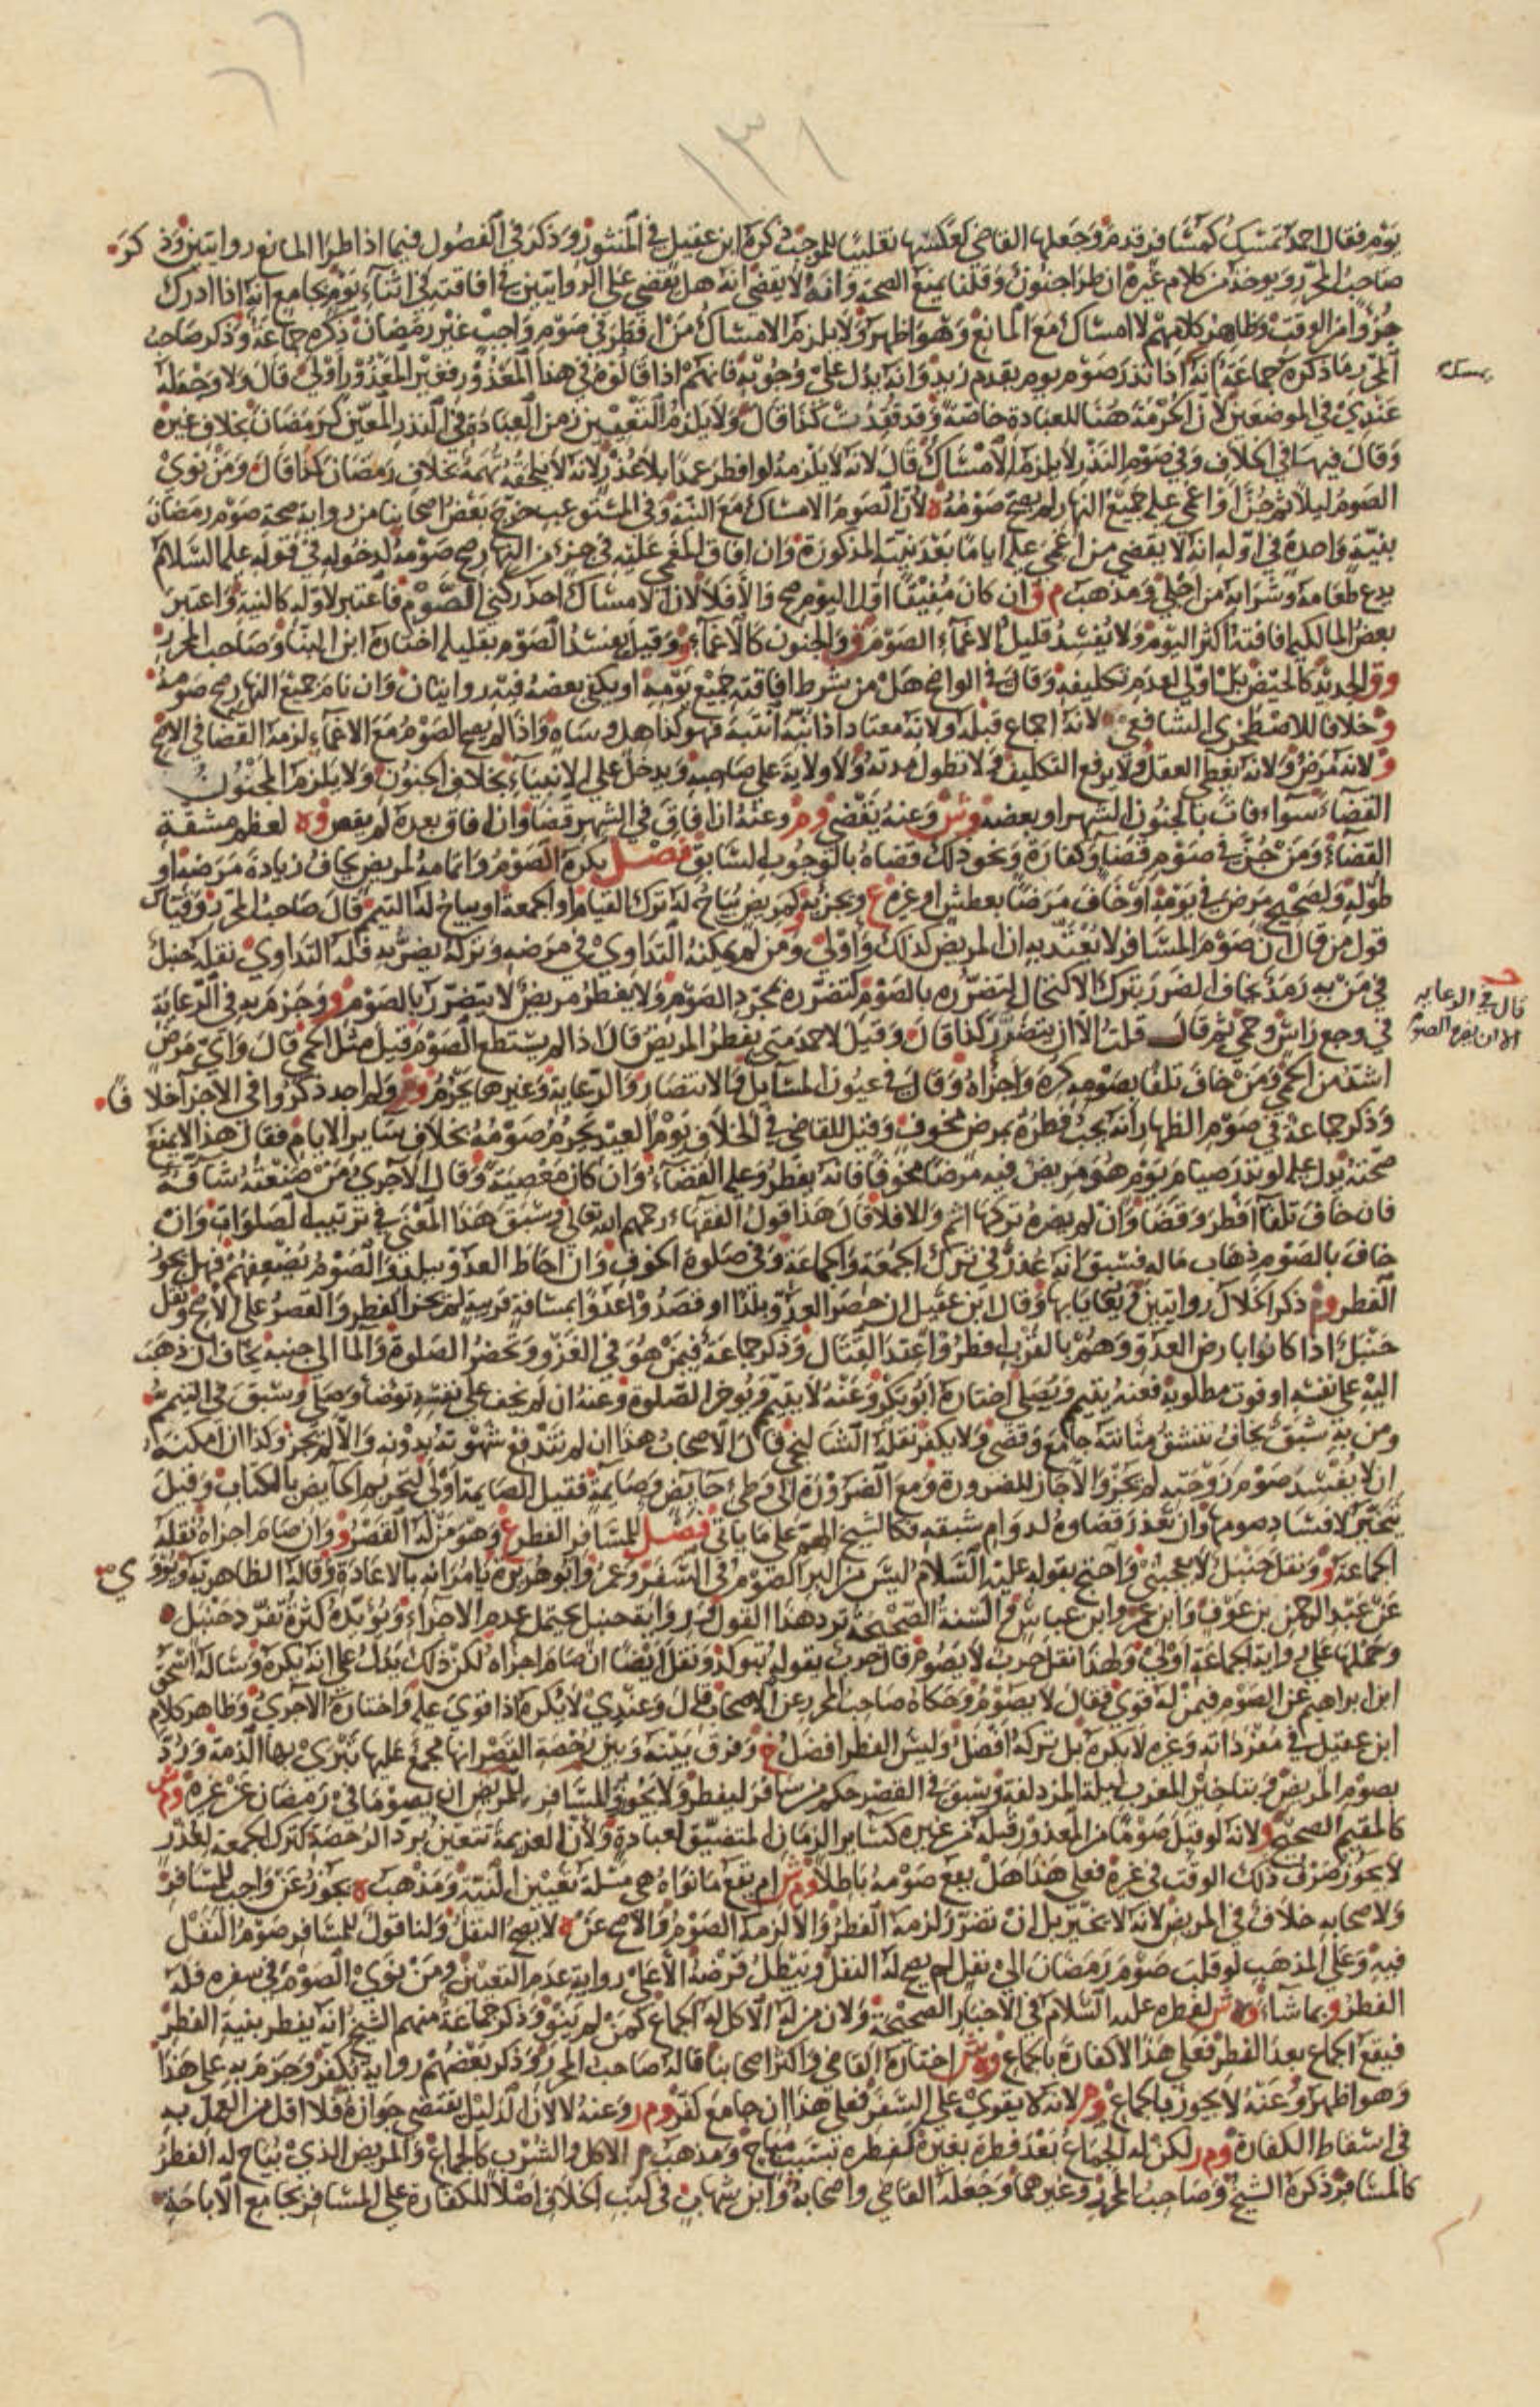 ١٣١
يوم فقال احمد تمسك كمسافر قدم وجعلها القاضي كعكسها تغليبا للموجب ذكره ابن عقيل في المنثور وذكر في الفصول فيما اذا طرا المانع روايتين وذكره
صاحب المحرر ويوخذ من كلام غيره ان طرا جنون وقلنا يمنع الصحة وانه لا يقضي انه هل يقضي على الروايتين في افاقته في اثناء يوم بجامع انه اذا ادرك
جزوا من الوقت وظاهر كلامهم لا امساك مع المانع وهو اظهر ولا يلزم الامساك من افطر في صوم واجب غير رمضان ذكره جماعة وذكر صاحب
المحرر ما ذكره جماعة انه اذا نذر صوم يوم يقدم زيد وانه يدل على وجوبه فانهم اذا قالوه في هذا المعذور فغير المعذور اولى قال ولا وجه له
عندي في الموضعين لان الحرمة هنا للعبادة خاصة وقد فقدت كذا قال ولا يلزم التعيين زمن العبادة في النذر المعين كرمضان بخلاف غيره
وقال فيهما في الخلاف وفي صوم النذر لا يلزم الامساك قال لانه لا يلزمه لو افطر عمدا بلا عذر لانه لا يلحقه تهمة بخلاف رمضان كذا قال ومن نوى
الصوم ليلا ثم جن او اغمي عليه جميع النهار لم يصح صومه ه لان الصوم الامساك مع النية وفي المستوعب خرج بعض اصحابنا من رواية صحة صوم رمضان
بنية واحدة في اوله انه لا يقضي من اغمي عليه اياما بعد نيته المذكورة وان افاق المغمى عليه في جزء من النهار صح صومه لدخوله في قوله عليه السلام
يدع طعامه وشرابه من اجلي ومذهب م ق ان كان مفيقا اول اليوم صح والا فلا لان الامساك احد ركني الصوم فاعتبر لاوله كالنية واعتبر
بعض المالكيه افاقته اكثر اليوم ولا يفسد قليل الاغماء الصوم و والجنون كالاغماء و وقيل يفسد الصوم بقليله اختاره ابن البنا وصاحب المحرر
وق الجديد كالحيض بل اولى لعدم تكليفه وقال في الواضح هل من شرط افاقته جميع يومه او يكفي بعضه فيه روايتان وان نام جميع النهار صح صومه
و خلافا للاصطخري الشافعي لانه اجماع قبله ولانه معتاد اذا نبه انتبه فهو كذاهل وساه واذا لم يصح الصوم مع الاغماء لزمه القضا في الاصح
و لانه مرض ولانه يغطي العقل ولا يرفع التكليف ولا تطول مدته ولا ولاية على صاحبه ويدخل على الانبياء بخلاف الجنون ولا يلزم المجنون
القضاء سواء فات بالجنون الشهر او بعضه وش وعنه يقضي وم وعنه ان افاق في الشهر قضا وان افاق بعده لم يقض وه لعظم مشقة
القضاء ومن جن في صوم قضا وكفارة ونحو ذلك قضاه بالوجوب السابق فصل يكره الصوم واتمامه لمريض يخاف زيادة مرضه او
طوله ولصحيح مرض في يومه او خاف مرضا بعطش او غيره ع ويجزيه و لمريض يباح له ترك القيام او الجمعة او يباح له التيمم قال صاحب المحرر وقياس
قول من قال ان صوم المسافر لا يعتد به ان المريض كذلك واولى ومن لم يمكنه التداوي في مرضه وتركه يضر به فله التداوي نقله حنبل
في من به رمد يخاف الضرر بترك الاكتحال لتضرره بالصوم كتضرره بمجرد الصوم ولا يفطر مريض لا يتضرر بالصوم و وجزم به في الرعاية
في وجع راس وحمى ثم قال قلت الا ان يتضرر كذا قال وقيل لاحمد متى يفطر المريض قال اذا لم يستطع الصوم قيل مثل الحمى قال واي مرض
اشد من الحمى ومن خاف تلفا بصومه كره واجزاه وقال في عيون المسايل والانتصار والرعاية وغيرهما يحرم و ولم اجد ذكروا في الاجزا خلافا
وذكر جماعة في صوم الظهار انه يجب فطره بمرض مخوف وقيل للقاضي في الخلاف يوم العيد يحرم صومه بخلاف ساير الايام فقال هذا لا يمنع
صحته بدليل لو نذر صيام يوم هو مريض فيه مرضا مخوفا فانه يفطر وعليه القضاء وان كان معصية وقال الآجري من صنعته شاقة
فان خاف تلفا افطر وقضا وان لم يضره تركها اثم والا فلا قال هذا قول الفقهاء رحمهم الله تعالى وسبق هذا المعنى في ترتيب الصلوات وان
خاف بالصوم ذهاب ماله فسبق انه عذر في ترك الجمعة والجماعة وفي صلوة الخوف وان احاط العدو ببلد والصوم يضعفهم فهل يجوز
الفطر وم ذكر الخلال روايتين ويعايا بها وقال ابن عقيل ان حصر العدو بلدا او قصدوا عدوا بمسافة قريبة لم يجز الفطر والقصر على الاصح ونقل
حنبل اذا كانوا بارض العدو وهم بالقرب افطروا عند القتال وذكر جماعة فيمن هو في الغزو وتحضر الصلوة والما الى جنبه يخاف ان ذهب
اليه على نفسه او فوت مطلوبه فعنه يتيمم ويصلي اختاره ابو بكر وعنه لا يتيمم ويوخر الصلوة وعنه ان لم يخف على نفسه توضا وصلى وسبق في التيمم
ومن به شبق يخاف تنشق مثانته جامع وقضى ولا يكفر نقله الشالنجي قال الاصحاب هذا ان لم تندفع شهوته بدونه والا لم يجز وكذا ان امكنه
ان لا يفسد صوم زوجته لم يجز والا جاز للضرورة ومع الضرورة الى وطئ حايض وصايمة فقيل الصايمة اولى لتحريم الحايض بالكتاب وقيل
يتخير لافساد صومها وان تعذر قضاوه لدوام شبقه فكالشيخ الهم على ما ياتي فصل للمسافر الفطر ع وهو من له القصر و وان صام اجزاه نقله
الجماعة و ونقل حنبل لا يعجبني واحتج بقوله عليه السلام ليس من البر الصوم في السفر وعمر وابو هريرة يامرانه بالاعادة وقاله الظاهرية ويروى
عن عبد الرحمن بن عوف وابن عمر وابن عباس والسنة الصحيحة ترد هذا القول ورواية حنبل يحتمل عدم الاجزاء ويؤيده كثرة تفرد حنبل
وحملها على رواية الجماعة اولى ولهذا نقل حرب لا يصوم قال حرب يقوله بتوكد ونقل ايضا ان صام اجزاه لكن ذلك يدل على انه يكره وساله اسحق
ابن ابراهيم عن الصوم فيمن له قوي فقال لا يصوم وحكاه صاحب المحرر عن الاصحاب قال وعندي لا يكره اذا قوي عليه واختاره الآجري وظاهر كلام
ابن عقيل في مفرداته وغيره لا يكره بل تركه افضل وليس الفطر افضل خ وفرق بينه وبين رخصة القصر انها مجمع عليها تبرى بها الذمة ورد
بصوم المريض وبتاخير المغرب ليلة المزدلفة وسبق في القصر حكم من سافر ليفطر ولا يجوز للمسافر والمريض ان يصوما في رمضان عن غيره وم ش
كالمقيم الصحيح و ولانه لو قبل صوما من المعذور قبله من غيره كساير الزمان المتضيق لعبادة ولان العزيمة تتعين برد الرخصة كترك الجمعة لعذر
لا يجوز صرف ذلك الوقت في غيره فعلى هذا هل يقع صومه باطلا وم ش ام يقع ما نواه هي مسئلة تعيين النية ومذهب ه يجوز عن واجب للمسافر
ولاصحابه خلاف في المريض لانه لا تخيير بل ان تضرر لزمه الفطر والا لزمه الصوم والاصح عن ه لا يصح النفل ولنا قول للمسافر صوم النفل
فيه وعلى المذهب لو قلب صوم رمضان الى نفل لم يصح له النفل ويبطل فرضه الا على رواية عدم التعيين ومن نوى الصوم في سفره فله
الفطر و بما شاء وه ش لفطره عليه السلام في الاخبار الصحيحة ولان من له الاكل له الجماع كمن لم ينو وذكر جماعة منهم الشيخ انه يفطر بنية الفطر
فيقع الجماع بعد الفطر فعلى هذا لا كفارة بالجماع وه ش اختاره القاضي واكثر اصحابنا قاله صاحب المحرر وذكر بعضهم رواية يكفر وجزم به على هذا
وهو اظهر وعنه لا يجوز بالجماع وم لانه لا يقوي على السفر فعلى هذا ان جامع كفر وم ر وعنه لا لان الدليل يقتضي جوازه فلا اقل من العمل به
في اسقاط الكفارة وم ر لكن له الجماع بعد فطره بغيره كفطره بسبب مباح ومذهب م الاكل والشرب كالجماع والمريض الذي يباح له الفطر
كالمسافر ذكره الشيخ وصاحب المحرر وغيرهما وجعله القاضي واصحابه وابن شهاب في كتب الخلاف اصلا للكفارة على المسافر بجامع الاباحة
يمسك
قال في الرعايه
الا ان يضره الصوم